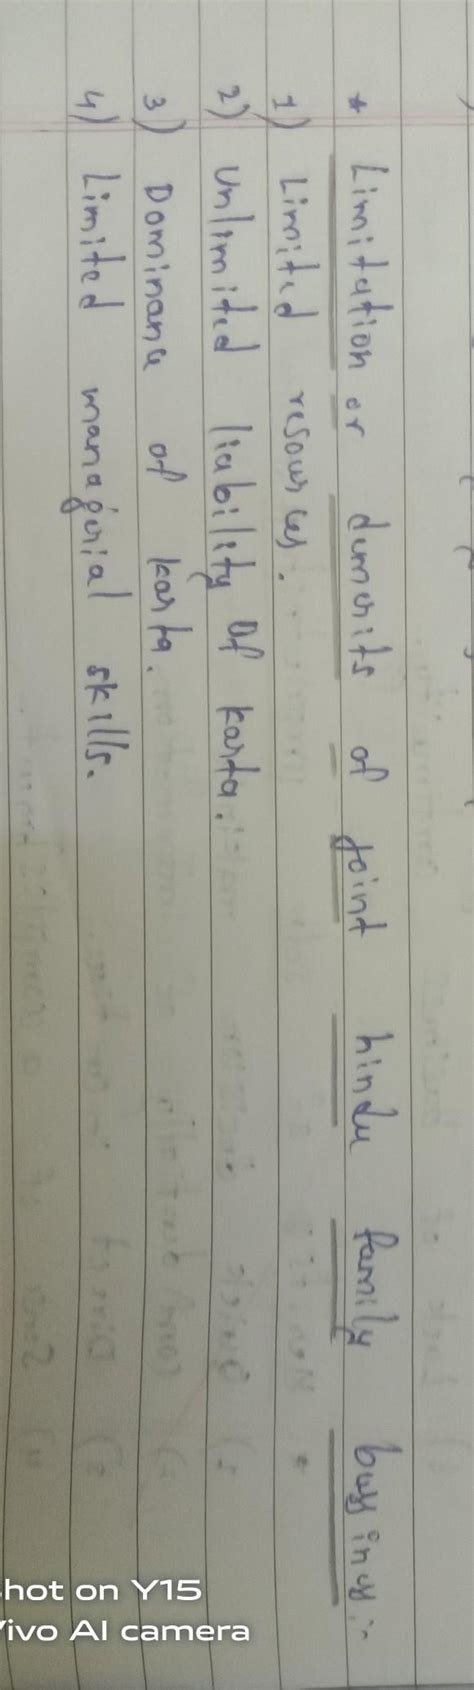 * Limitation or demerits of Joint hindu family bussiness :-
1) Limited resources.
2) Unlimited liability of karta.
3) Dominance of karta.
4) Limited managerial skills.
hot on Y15
Vivo AI camera